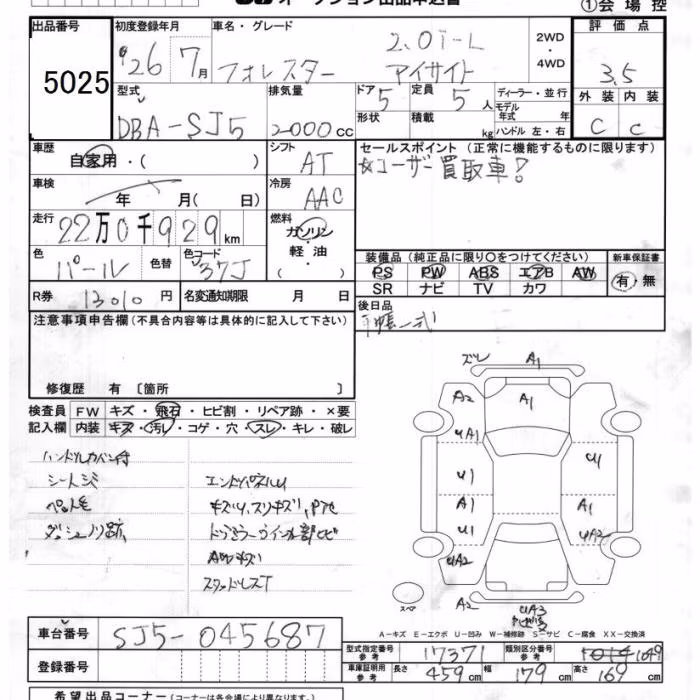 オークション出品申込書
①会場控
出品番号
5025
初度登録年月
'26年7月
車名・グレード
フォレスター
2.0i-L
アイサイト
2WD
・
4WD
評価点
3.5
外装 内装
C C
型式
DBA-SJ5
排気量
2000cc
ドア
5
定員
5人
形状
積載
kg
ディーラー・並行
モデル
年式 年
ハンドル 左・右
車歴
自家用・( )
シフト
AT
セールスポイント (正常に機能するものに限ります)
☆ユーザー買取車!
車検
年 月( 日)
冷房
AAC
走行
22万0千929km
燃料
ガソリン
軽・油
( )
色
パール
色替
色コード
37J
装備品 (純正品に限り○をつけてください)
PS PW ABS エアB AW
SR ナビ TV カワ
新車保証書
有・無
R券 13010円
名変通知期限 月 日
後日品
手帳一式
注意事項申告欄(不具合内容等は具体的に記入して下さい)
修復歴 有 〔箇所 〕
検査員 FW キズ・飛石・ヒビ割・リペア跡・×要
記入欄 内装 キズ・汚レ・コゲ・穴・スレ・キレ・破レ
ハンドルカバー付
シートシミ
ペット毛
ダッシュノリ跡
エンドパネルU
キズU,スリキズ,
AWキズ
スタッドレスT
ズレ A1
A2 A1
UA1
U1 U1
A1 A1
U1 UA2
UA2
A2 UA3
スペア
A-キズ E-エクボ U-凹み W-補修跡 S-サビ C-腐食 XX-交換済
車台番号 SJ5-045687
登録番号
型式指定番号
参考
17371
類別区分番号
参考
1049
車庫証明用
参考
長さ 459cm 幅 179cm 高さ 169cm
希望出品コーナー(コーナーは各会場により異なります)